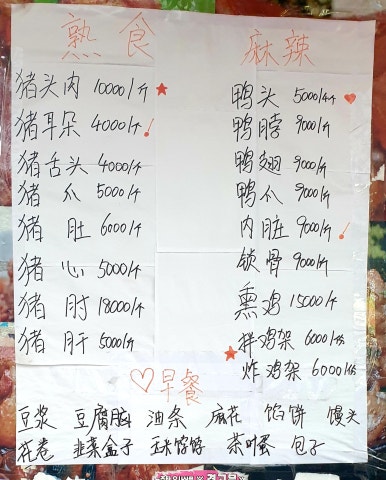 熟食
猪头肉 10000/斤
猪耳朵 4000/个
猪舌头 4000/个
猪爪 5000/个
猪肚 6000/个
猪心 5000/个
猪肘 18000/个
猪肝 5000/个
麻辣
鸭头 5000/4个
鸭脖 9000/斤
鸭翅 9000/斤
鸭爪 9000/斤
内脏 9000/斤
锁骨 9000/斤
熏鸡 15000/个
拌鸡架 6000/份
炸鸡架 6000/份
早餐
豆浆 豆腐脑 油条 麻花 馅饼 馒头
花卷 韭菜盒子 玉米饽饽 茶叶蛋 包子